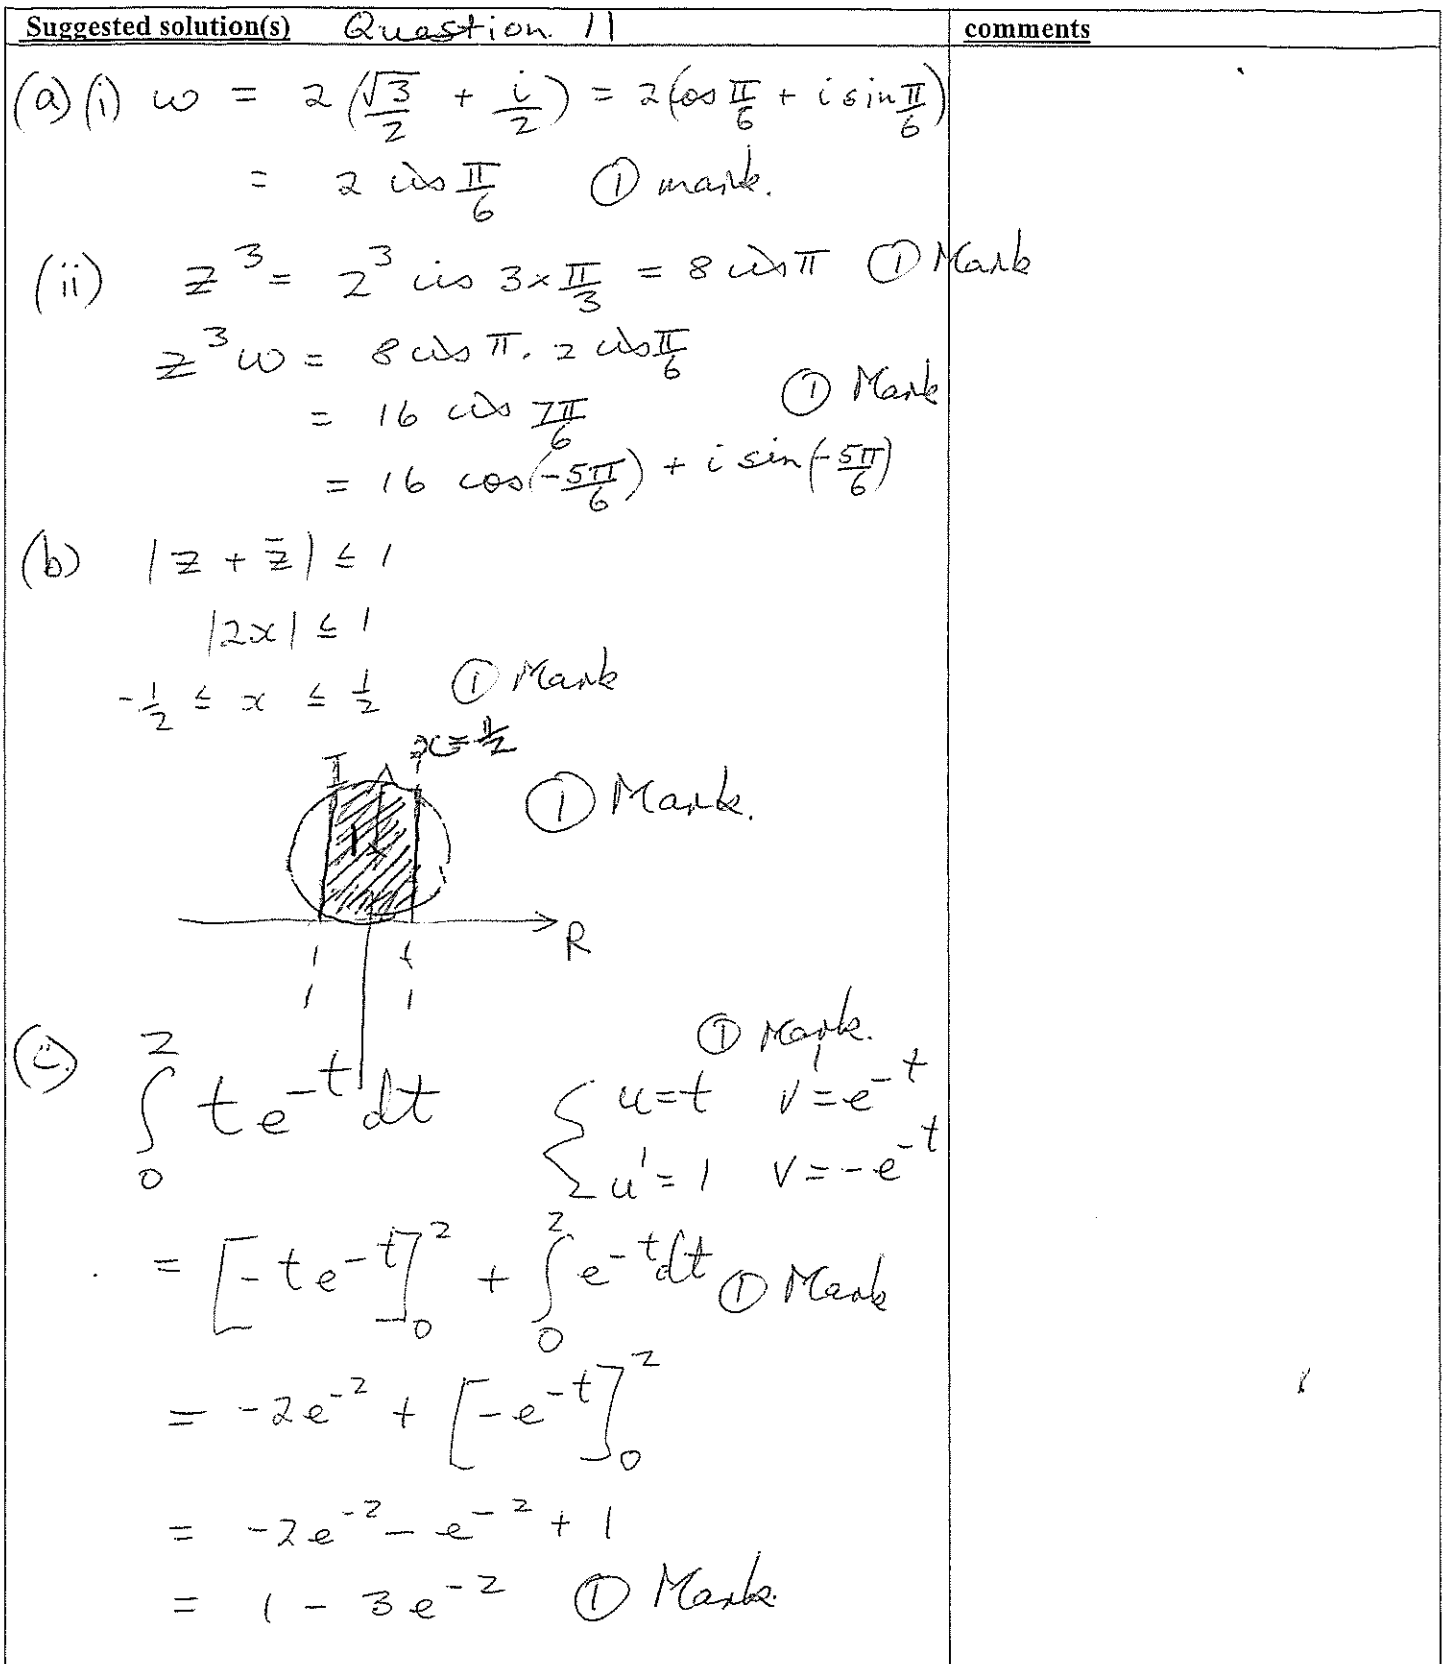 Suggested solution(s) Question 11 comments
(a) (i) w = 2(√3/2 + i/2) = 2(cos π/6 + i sin π/6)
= 2 cis π/6 ① mark.
(ii) z³ = 2³ cis 3×π/3 = 8 cis π ① Mark
z³w = 8 cis π. 2 cis π/6
= 16 cis 7π/6 ① Mark
= 16 cos(-5π/6) + i sin(-5π/6)
(b) |z + z̄| ≤ 1
|2x| ≤ 1
-1/2 ≤ x ≤ 1/2 ① Mark
x=1/2
I
① Mark.
1
R
(c) ① Mark.
∫₀² te^{-t} dt { u=t v'=e^{-t}
u'=1 v=-e^{-t}
= [-te^{-t}]₀² + ∫₀² e^{-t}dt ① Mark
= -2e^{-2} + [-e^{-t}]₀²
= -2e^{-2} - e^{-2} + 1
= 1 - 3e^{-2} ① Mark.